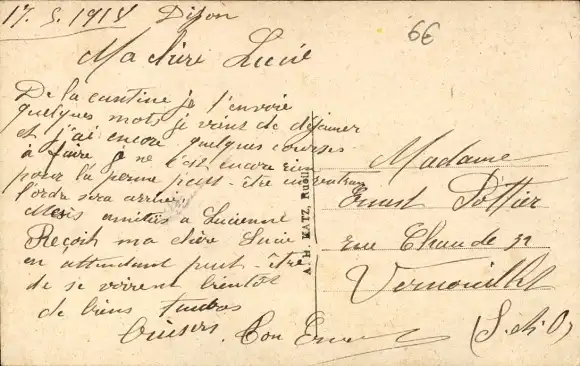 17. 5. 1918 Dijon
6€
Ma chère Lucie
De la cantine je t'envoie
quelques mots je viens de déjeuner
et j'ai encore quelques courses
à faire je ne sait encore rien
pour la perme peut-être en rentrant
l'ordre sera arrivé
Mes amitiés a Lucienne
Reçoit ma chère Lucie
en attendant peut-être
de se voir bientôt
de biens tendres
Baisers. Ton Ernest
A. H. KATZ, Rueil
Madame
Ernest Pottier
rue Chaude 32
Vernouillet
(S.&.O)